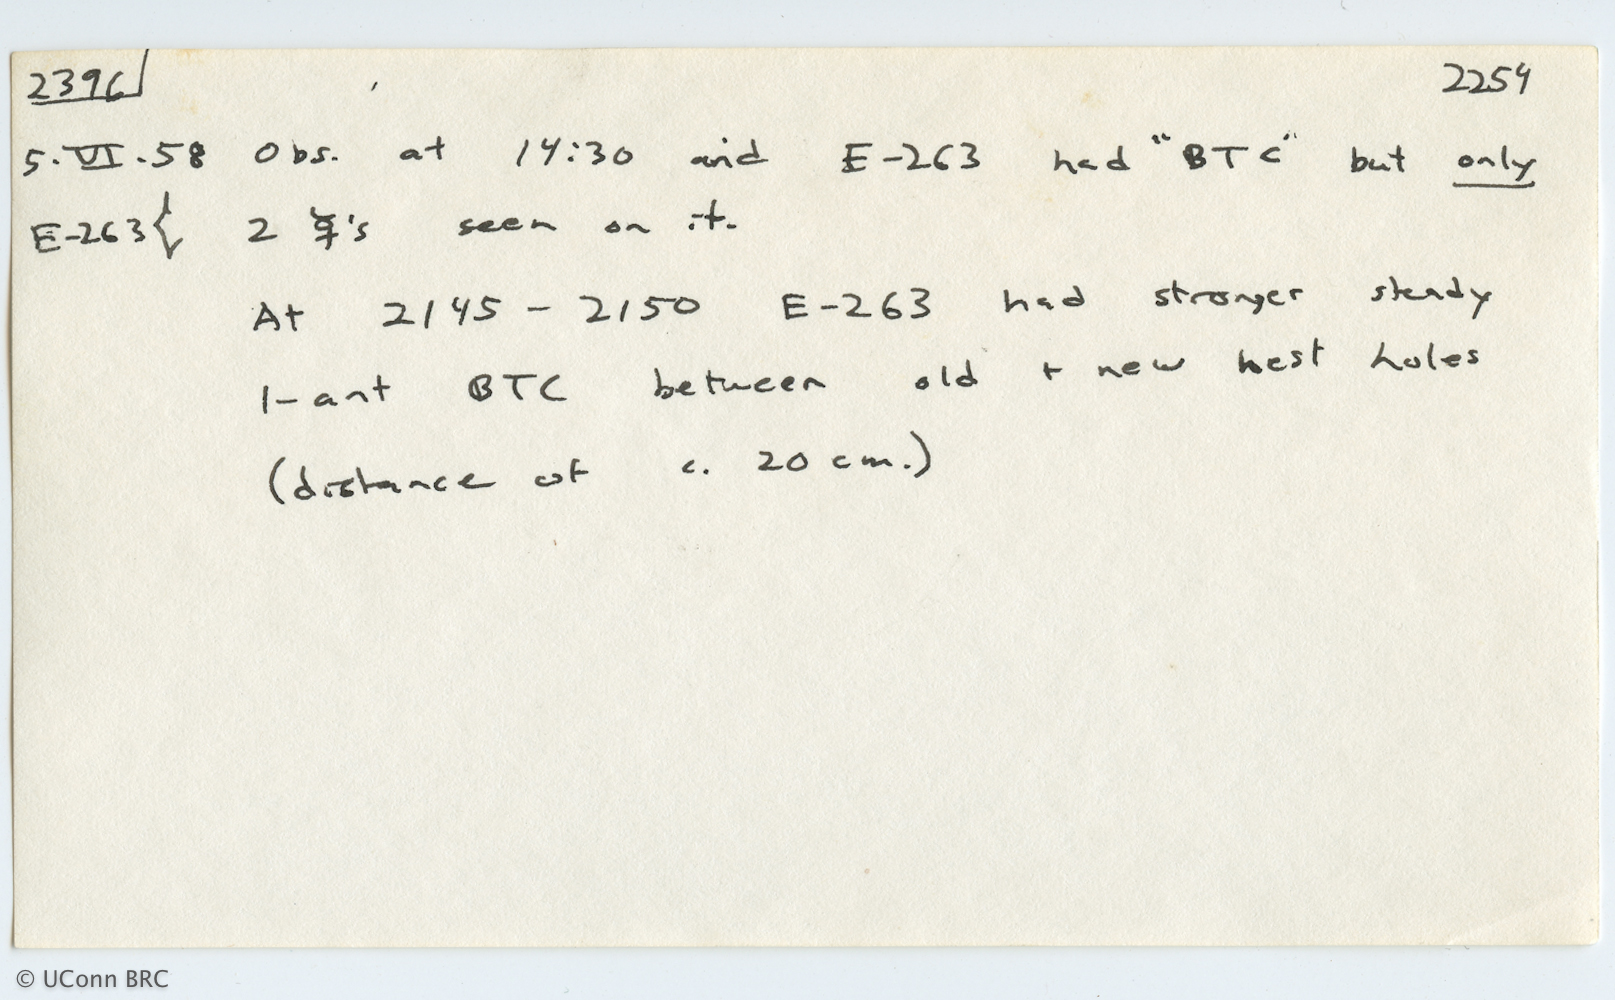 2396 2254
5.VI.58 Obs. at 14:30 and E-263 had "BTC" but only
E-263{ 2 ☿'s seen on it.
At 2145 - 2150 E-263 had stronger steady
1-ant BTC between old + new nest holes
(distance of c. 20 cm.)
© UConn BRC